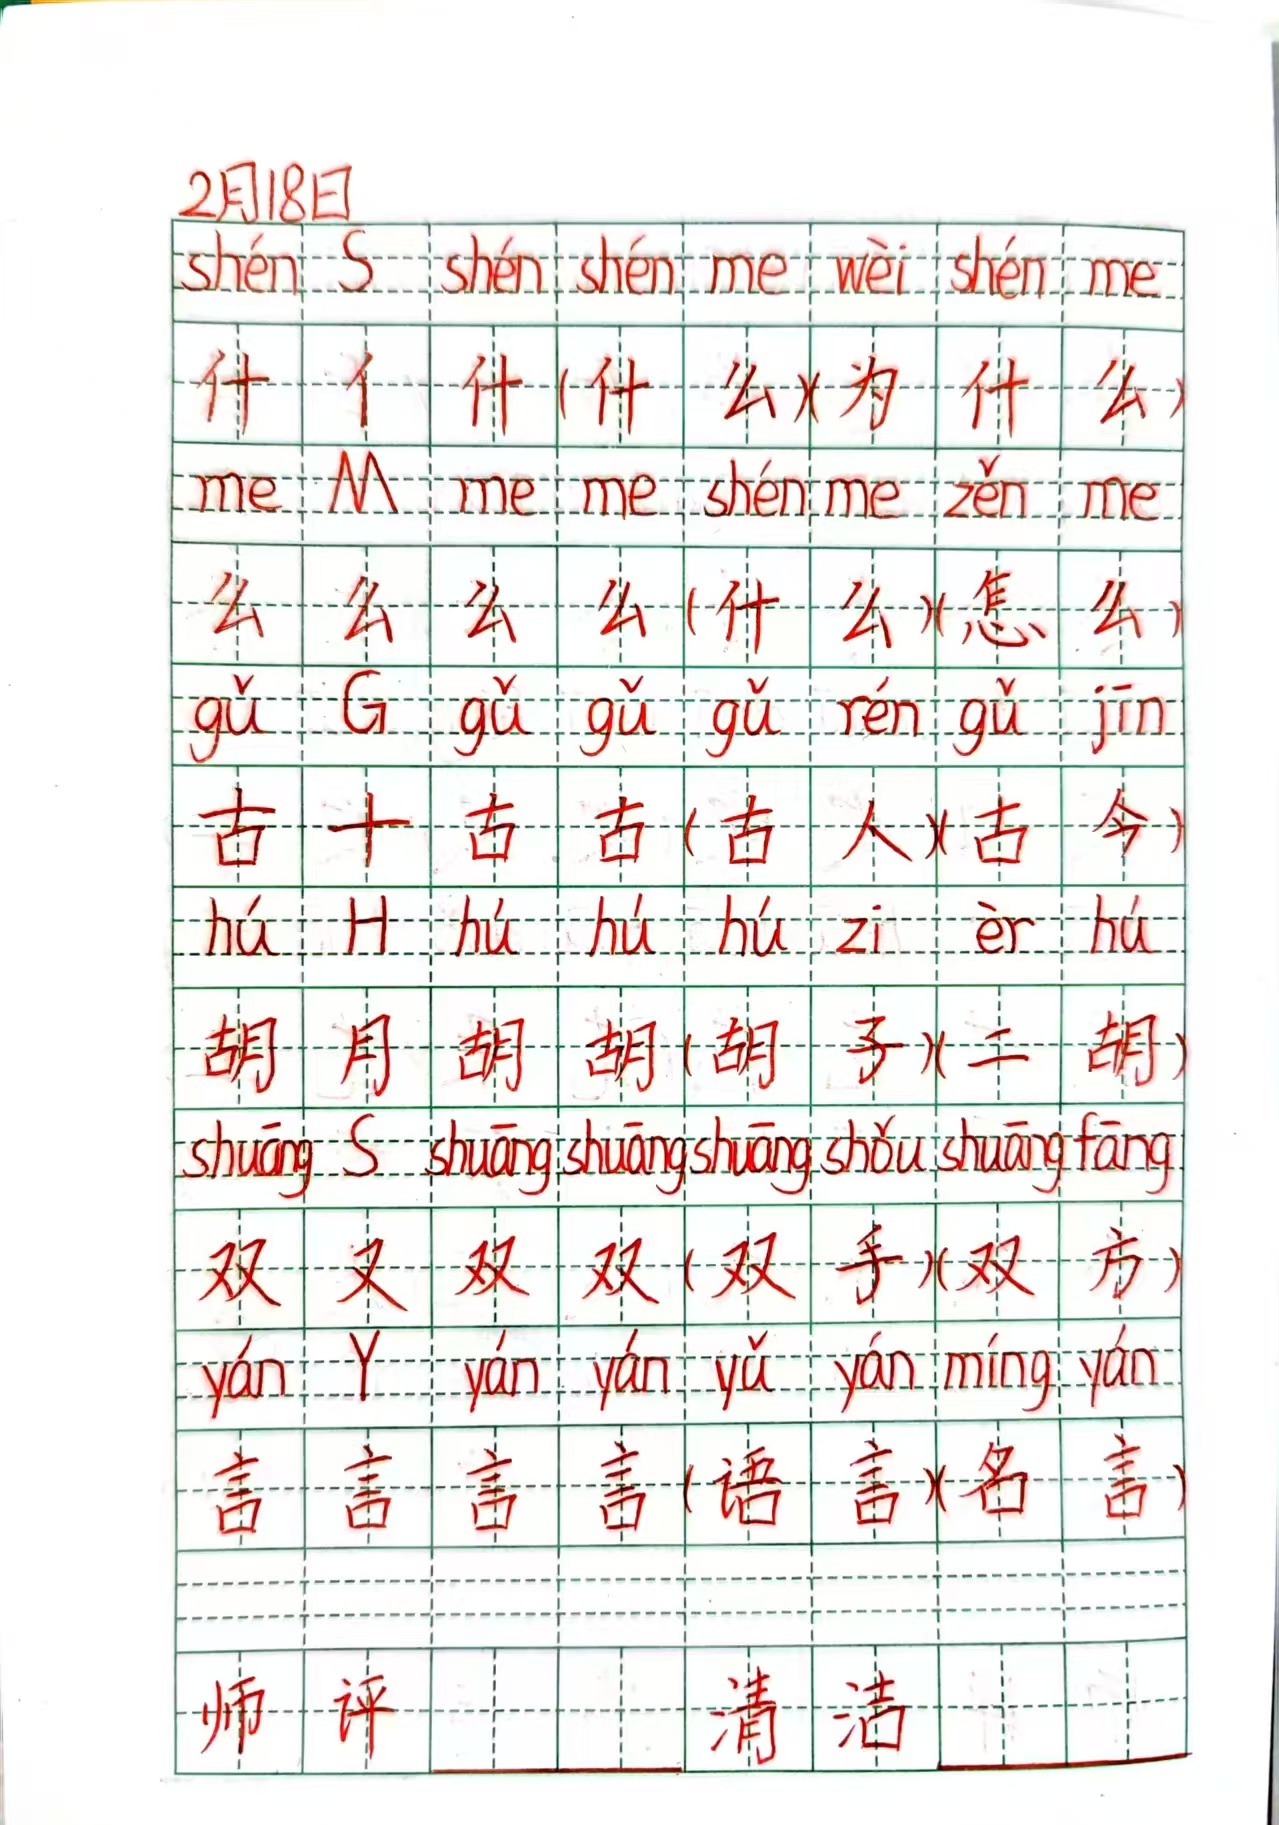 2月18日
shén S shén shén me wèi shén me
什 亻 什 (什 么)(为 什 么)
me M me me shén me zěn me
么 么 么 么 (什 么)(怎 么)
gǔ G gǔ gǔ gǔ rén gǔ jīn
古 十 古 古 (古 人)(古 今)
hú H hú hú hú zi èr hú
胡 月 胡 胡 (胡 子)(二 胡)
shuāng S shuāng shuāng shuāng shǒu shuāng fāng
双 又 双 双 (双 手)(双 方)
yán Y yán yán yǔ yán míng yán
言 言 言 言 (语 言)(名 言)
师 评 清 洁